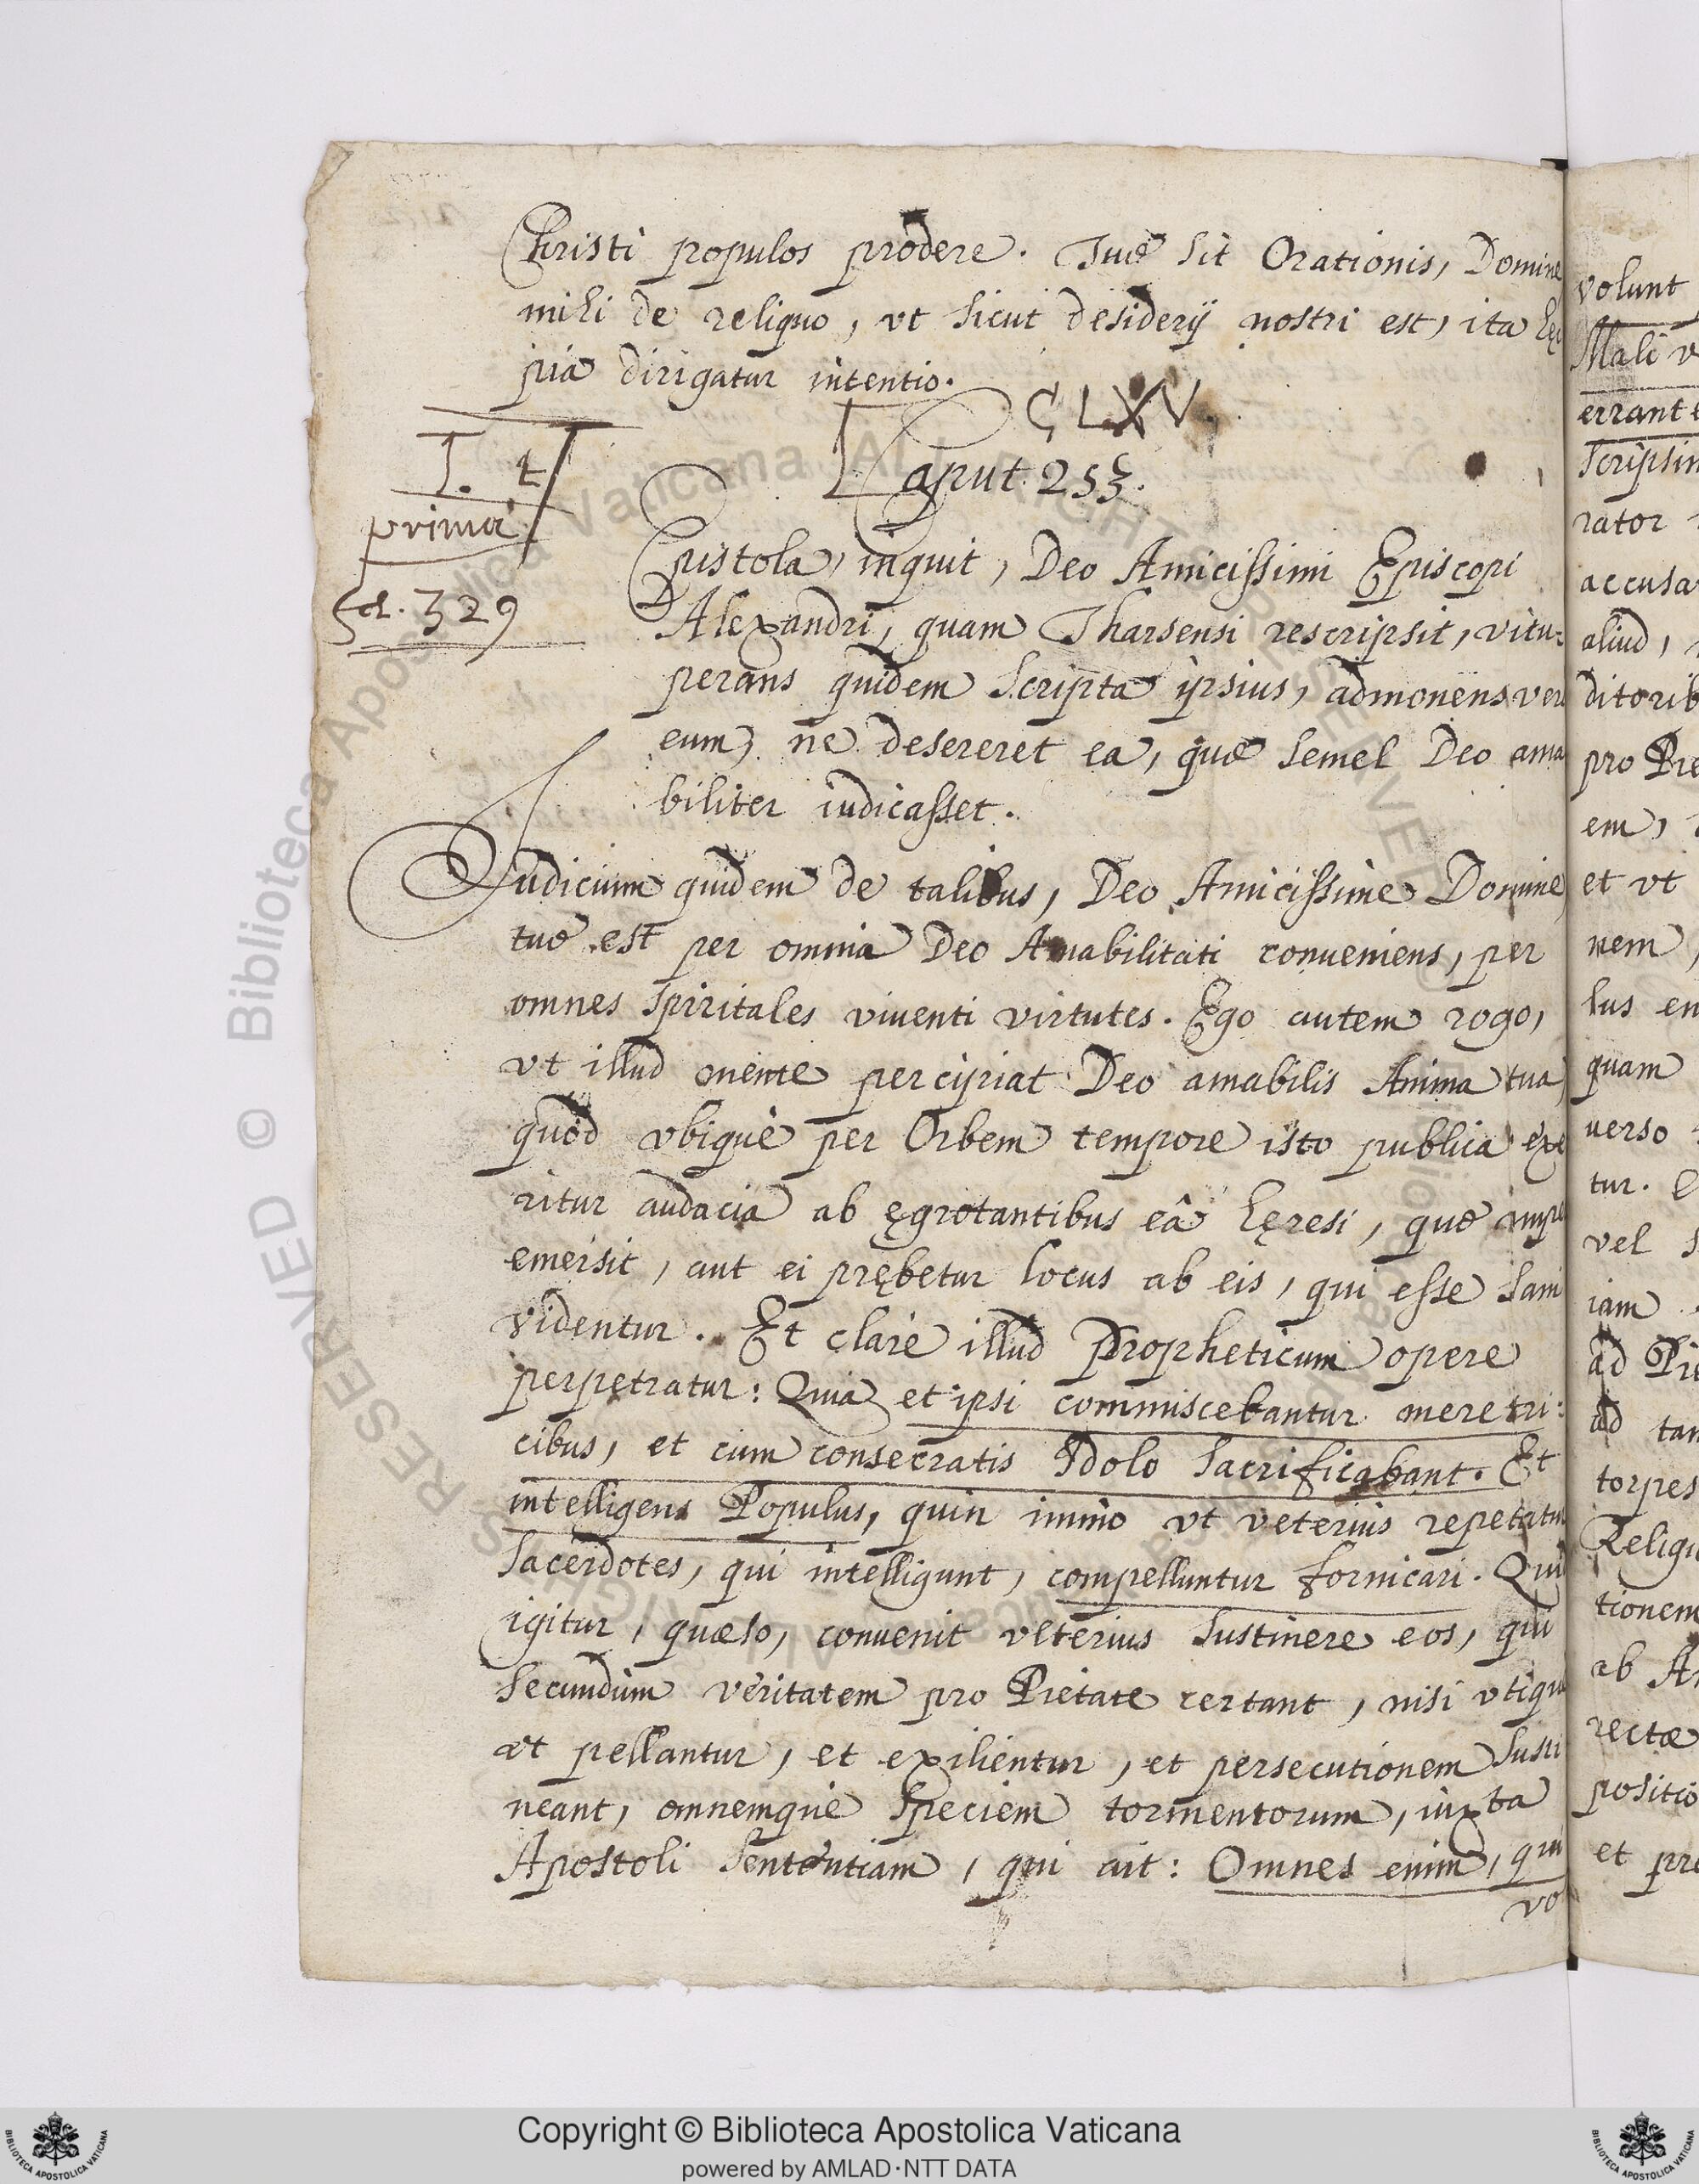 Christi populos prodere. Tuæ sit Orationis, Domine
mihi de reliquo, vt sicut desiderij nostri est, ita hęc
pia dirigatur intentio.
CLXV.
Caput. 253.
T. t
prima
fol. 329
Epistola, inquit, Deo Amicissimi Episcopi
Alexandri, quam Tharsensi rescripsit, vitu-
perans quidem Scripta ipsius, admonens ver
eum, ne desereret ea, quæ semel Deo ama
biliter iudicasset.
Judicium quidem de talibus, Deo Amicissime Domine
tuæ est per omnia Deo Amabilitati conueniens, per
omnes Spiritales viuenti virtutes. Ego autem rogo,
vt illud mente percipiat Deo amabilis Anima tua,
quod vbique per Orbem tempore isto publica exe
ritur audacia ab ęgrotantibus eâ hęresi, quæ nupe
emersit, aut ei prębetur locus ab eis, qui esse sani
videntur. Et clarè illud Propheticum opere
perpetratur: Quia et ipsi commiscebantur meretri:
cibus, et cum consecratis Idolo sacrificabant. Et
intelligens Populus, quin immo vt veterius repetatur
Sacerdotes, qui intelligunt, compelluntur fornicari. Qui
igitur, quæso, conuenit vlterius sustinere eos, qui
secundùm veritatem pro Pietate certant, nisi vtique
vt pellantur, et exilientur, et persecutionem susti
neant, omnemque speciem tormentorum, iuxta
Apostoli sententiam, qui ait: Omnes enim, qui
vo
volunt
Mali v
errant e
Scripsim
rator
accusa
aliud,
ditorib
pro Pie
em,
et vt
nem,
lus en
quam
uerso
tur.
vel S
iam
ad Pie
ad tan
torpes
Religi
tionem
ab A
rectæ
positio
et pro
© Biblioteca Apostolica Vaticana ALL RIGHTS RESERVED
Copyright © Biblioteca Apostolica Vaticana
powered by AMLAD·NTT DATA